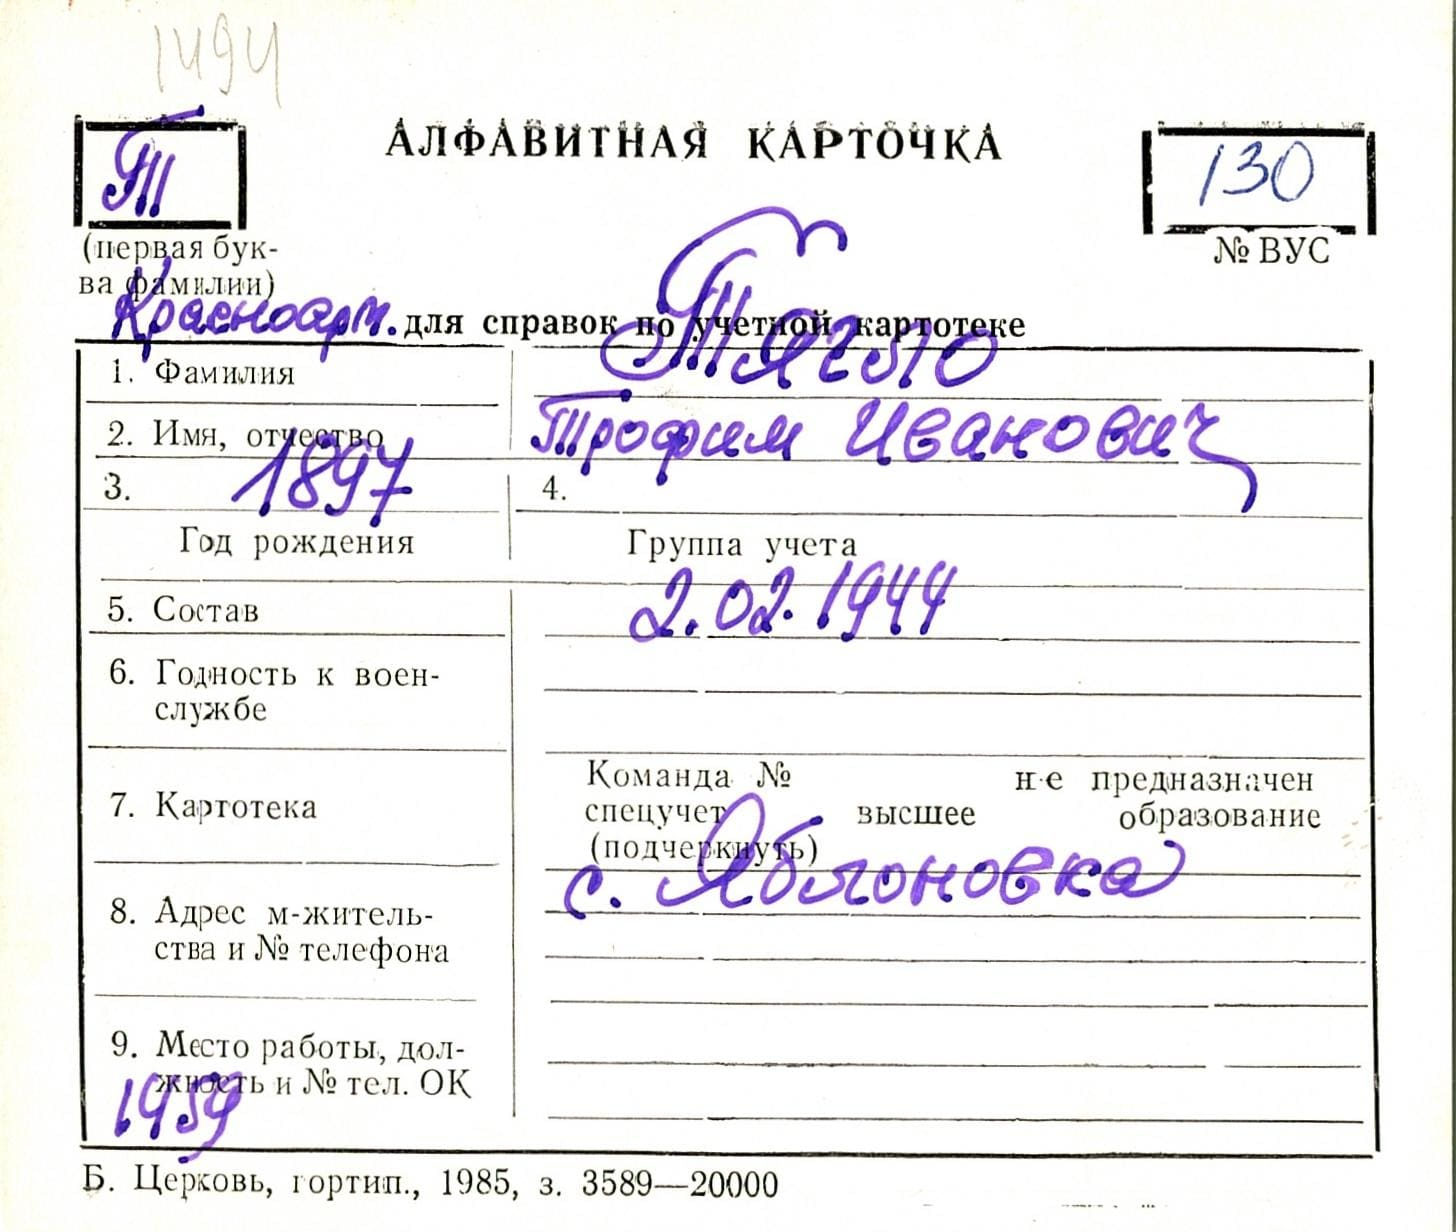 1494
Т
АЛФАВИТНАЯ КАРТОЧКА
130
(первая бук-
ва фамилии)
№ ВУС
Красноарм. для справок по учетной картотеке
1. Фамилия Тягло
2. Имя, отчество Трофим Иванович
3. 1897 4.
Год рождения Группа учета
5. Состав 2.02.1944
6. Годность к воен-
службе
Команда № не предназначен
7. Картотека спецучет высшее образование
(подчеркнуть)
с. Яблоновка
8. Адрес м-житель-
ства и № телефона
9. Место работы, дол-
жность и № тел. ОК
1959
Б. Церковь, гортип., 1985, з. 3589—20000